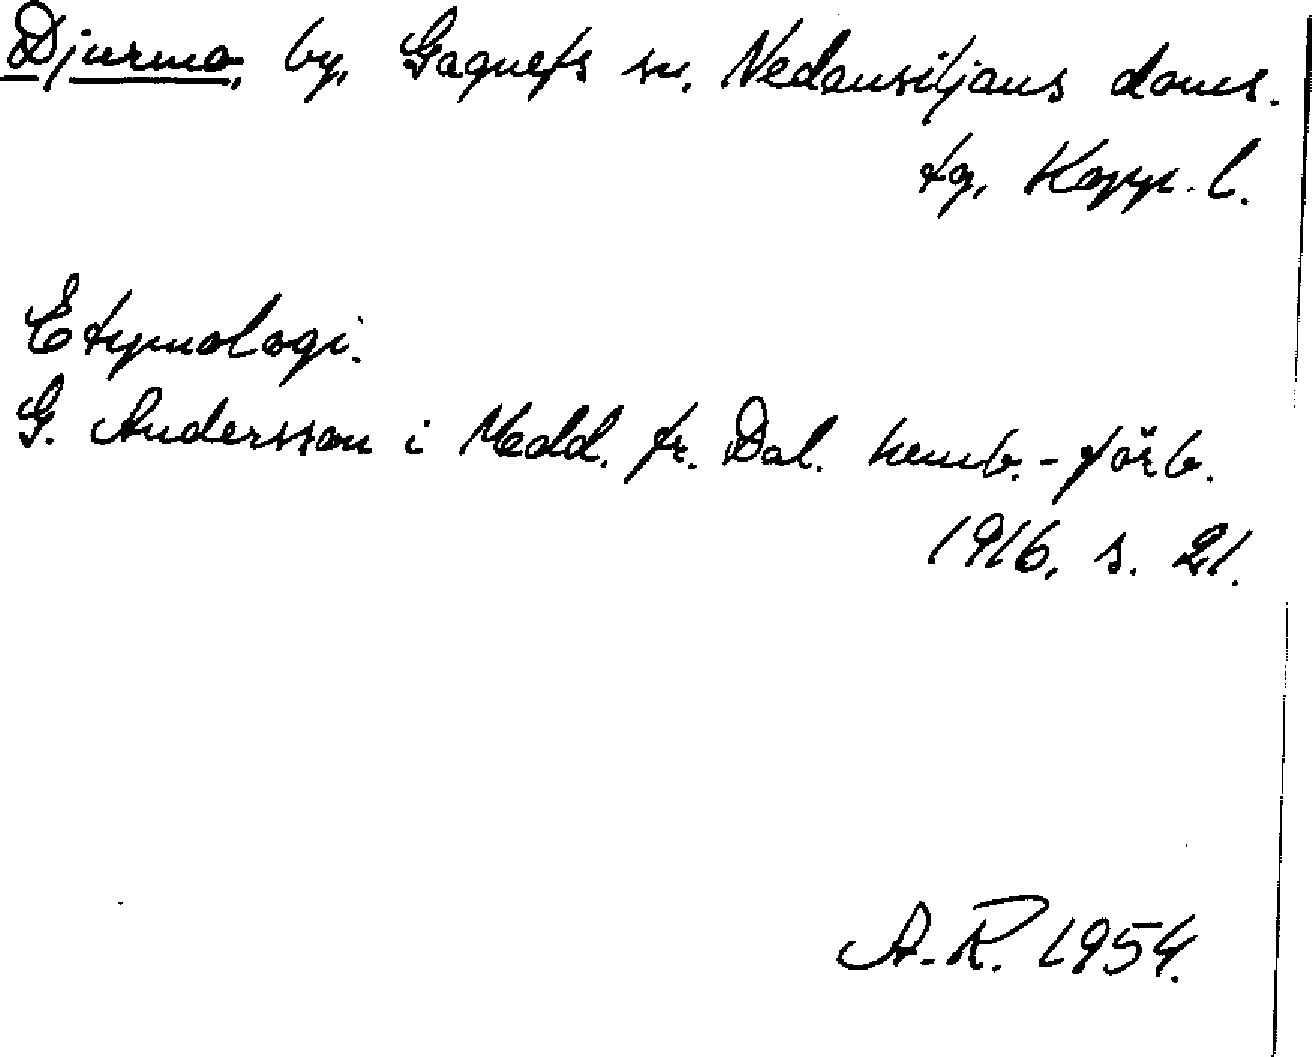 Djurmo, by, Gagnefs sn, Nedansiljans doms.
tg, Kopp. l.
Etymologi.
G. Andersson i Medd. fr. Dal. hemb.-förb.
1916, s. 21.
A.R. 1954.